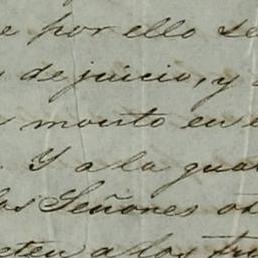 e por ello se
de juicio, y
monto en e
. Y a la gua
los Señores ot
eten a los fru